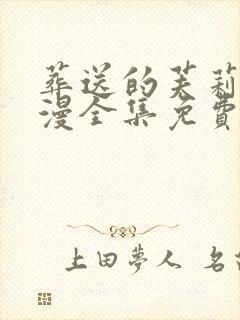 葬送的芙莉
漫全集免费
上田夢人 名